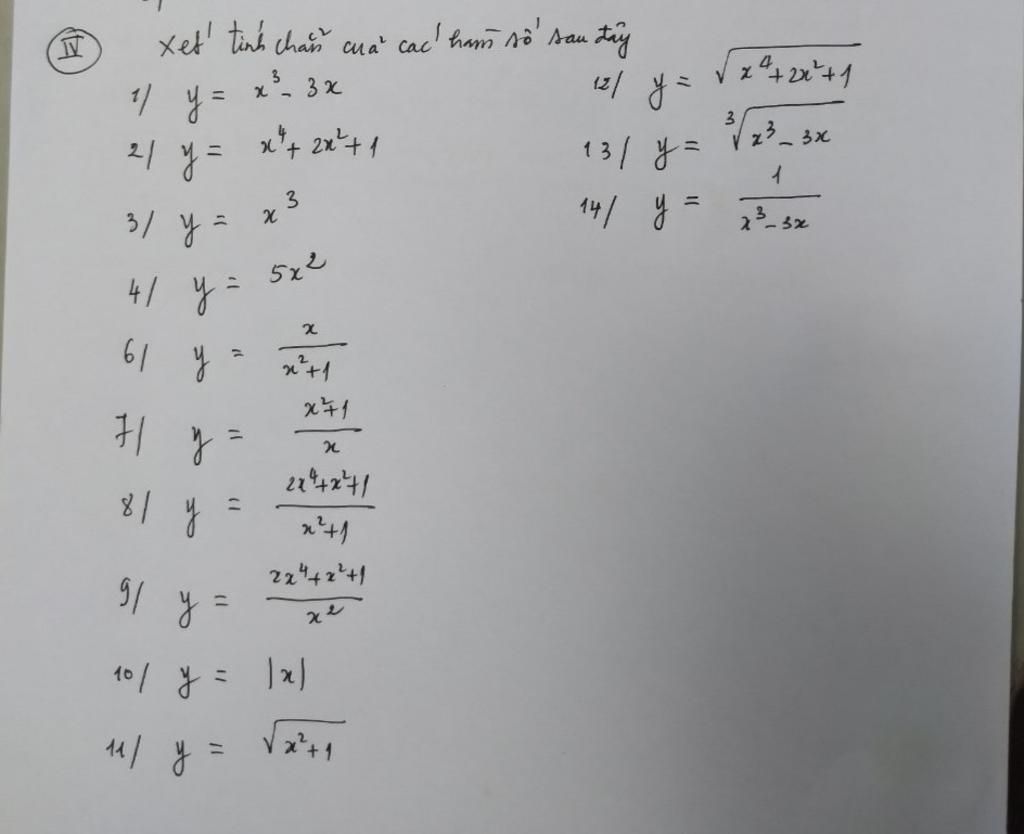 IV Xét tính chẵn của các hàm số sau đây
1/ y = x³ - 3x
2/ y = x⁴ + 2x² + 1
3/ y = x³
4/ y = 5x²
6/ y = x / (x² + 1)
7/ y = (x² + 1) / x
8/ y = (2x⁴ + x² + 1) / (x² + 1)
9/ y = (2x⁴ + x² + 1) / x²
10/ y = |x|
11/ y = √(x² + 1)
12/ y = √(x⁴ + 2x² + 1)
13/ y = ³√(x³ - 3x)
14/ y = 1 / (x³ - 3x)